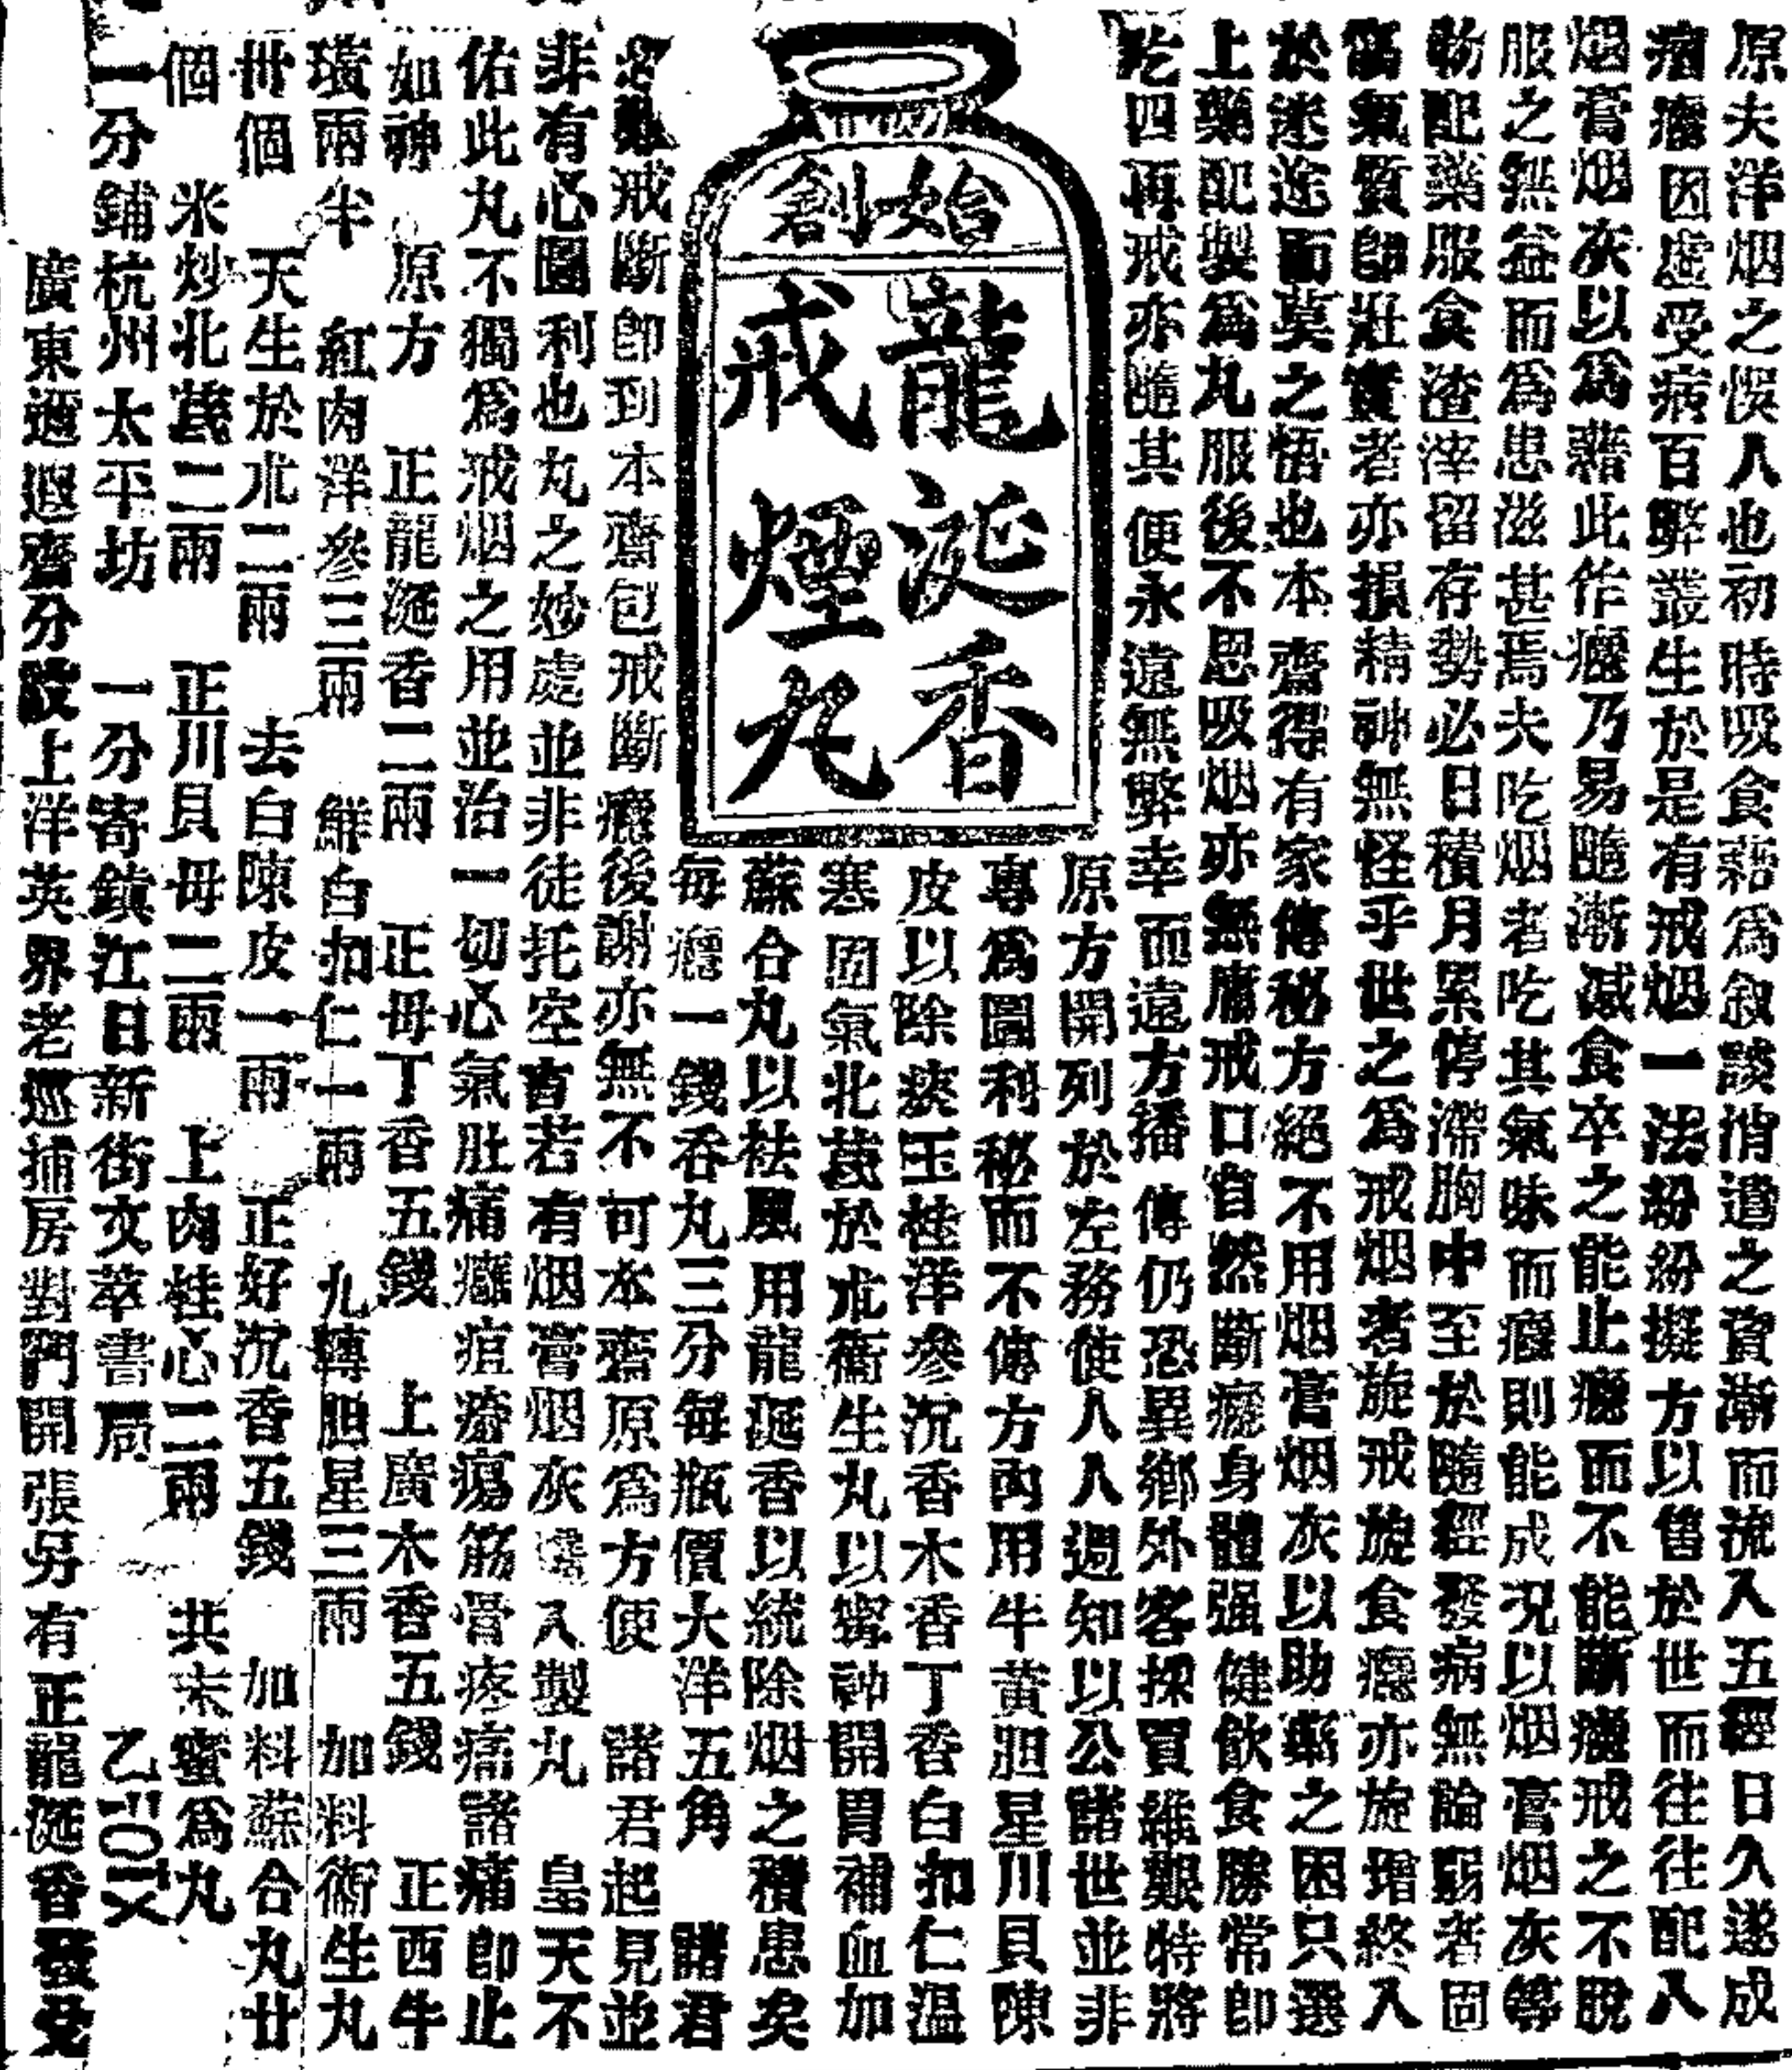 原夫洋烟之悞人也初時吸食藉爲敘談消遣之資漸而流入五經日久遂成
痼癮因虛受病百弊叢生於是有戒烟一法紛紛擬方以售於世而往往配入
烟膏烟灰以爲藉此作癮乃易隨漸减食卒之能止癮而不能斷癮戒之不脫
服之無益而爲患滋甚焉夫吃烟者吃其氣味而癮則能成况以烟膏烟灰等
物配藥服食渣滓留存勢必日積月累停滯胸中至於隨經發病無論弱者固
爲氣質卽壯實者亦損精神無怪乎世之爲戒烟者旋戒旋食癮亦旋增終入
於迷途而莫之悟也本齋得有家傳秘方絕不用烟膏烟灰以助藥之困只選
上藥配製爲丸服後不思吸烟亦無庸戒口自然斷癮身體强健飲食勝常卽
吃四再戒亦隨其便永遠無弊幸而遠方播傳仍恐異鄉外客採買維艱特將
原方開列於左務使人人週知以公諸世並非
專爲圖利秘而不傳方內用牛黃胆星川貝陳
皮以除痰玉桂洋參沉香木香丁香白扣仁温
寒固氣北芪於朮衛生丸以寧神開胃補血加
蘇合丸以祛風用龍涎香以統除烟之積患矣
每癮一錢吞丸三分每瓶價大洋五角 諸君
始創
龍涎香
戒煙丸
戒斷卽到本齋包戒斷癮後謝亦無不可本齋原爲方便 諸君起見並
非有心圖利也丸之妙處並非徒托空言若有烟膏烟灰攙入製丸 皇天不
佑此丸不獨爲戒烟之用並治一切心氣肚痛癰疽瘡瘍筋骨疼痛諸痛卽止
如神 原方 正龍涎香二兩 正母丁香五錢 上廣木香五錢 正西牛
璜兩半 紅肉洋參三兩 鮮白扣仁一兩 九轉胆星三兩 加料衛生丸
卅個 天生於朮二兩 去白陳皮一兩 正好沉香五錢 加料蘇合丸廿
個 米炒北芪二兩 正川貝母二兩 上肉桂心二兩 共末蜜爲丸
一分鋪杭州太平坊 一分寄鎮江日新街文萃書局
廣東邇遐齋分設上洋英界老巡捕房對門開張另有正龍涎香發兌